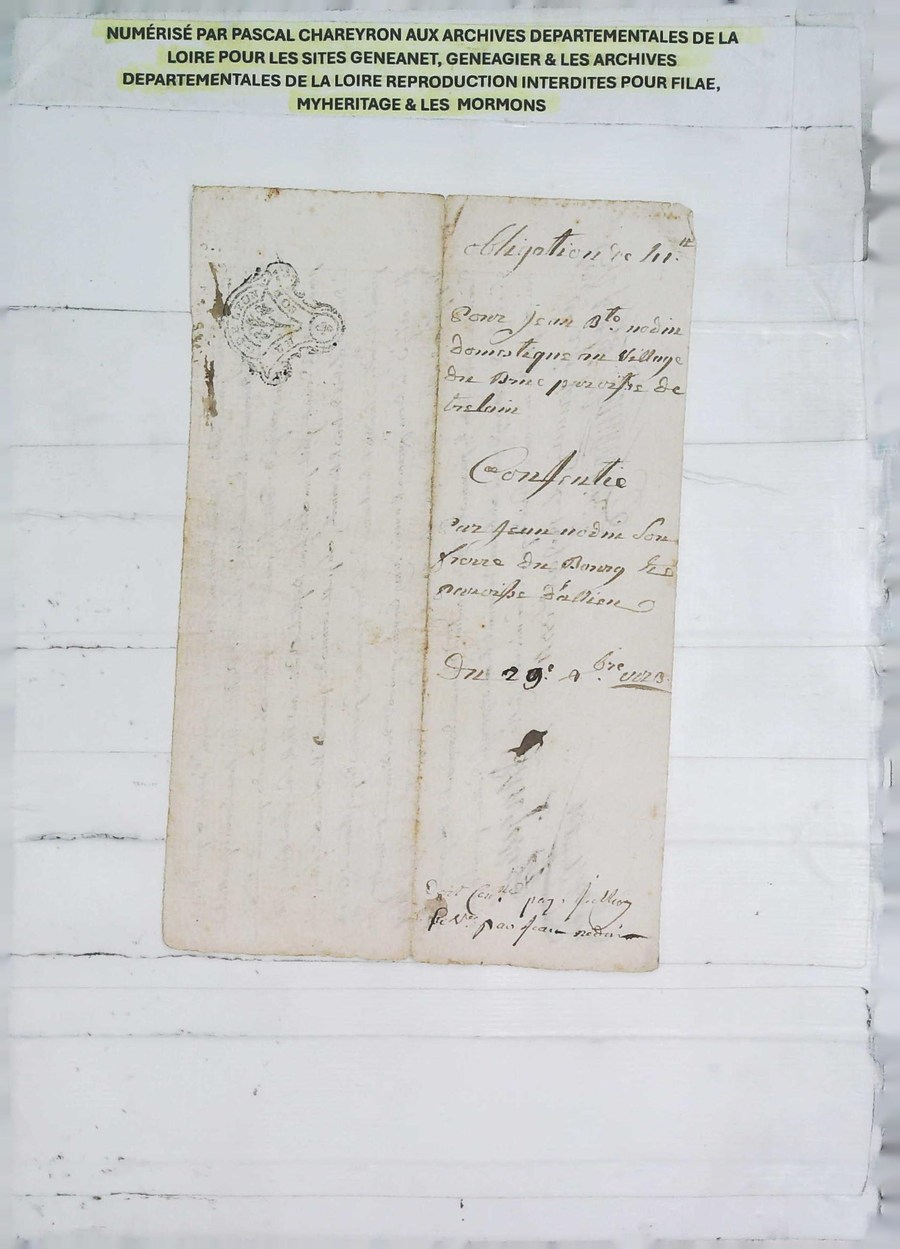 NUMÉRISÉ PAR PASCAL CHAREYRON AUX ARCHIVES DEPARTEMENTALES DE LA
LOIRE POUR LES SITES GENEANET, GENEAGIER & LES ARCHIVES
DEPARTEMENTALES DE LA LOIRE REPRODUCTION INTERDITES POUR FILAE,
MYHERITAGE & LES MORMONS
obligation de
Pour Jean Bte nodin
domestique au Village
du Bruc paroisse de
trelain
Consentie
Par Jean nodin Son
frerre du Bourg
parroisse d'allieu
Du 29e 9bre
par Jean nodin